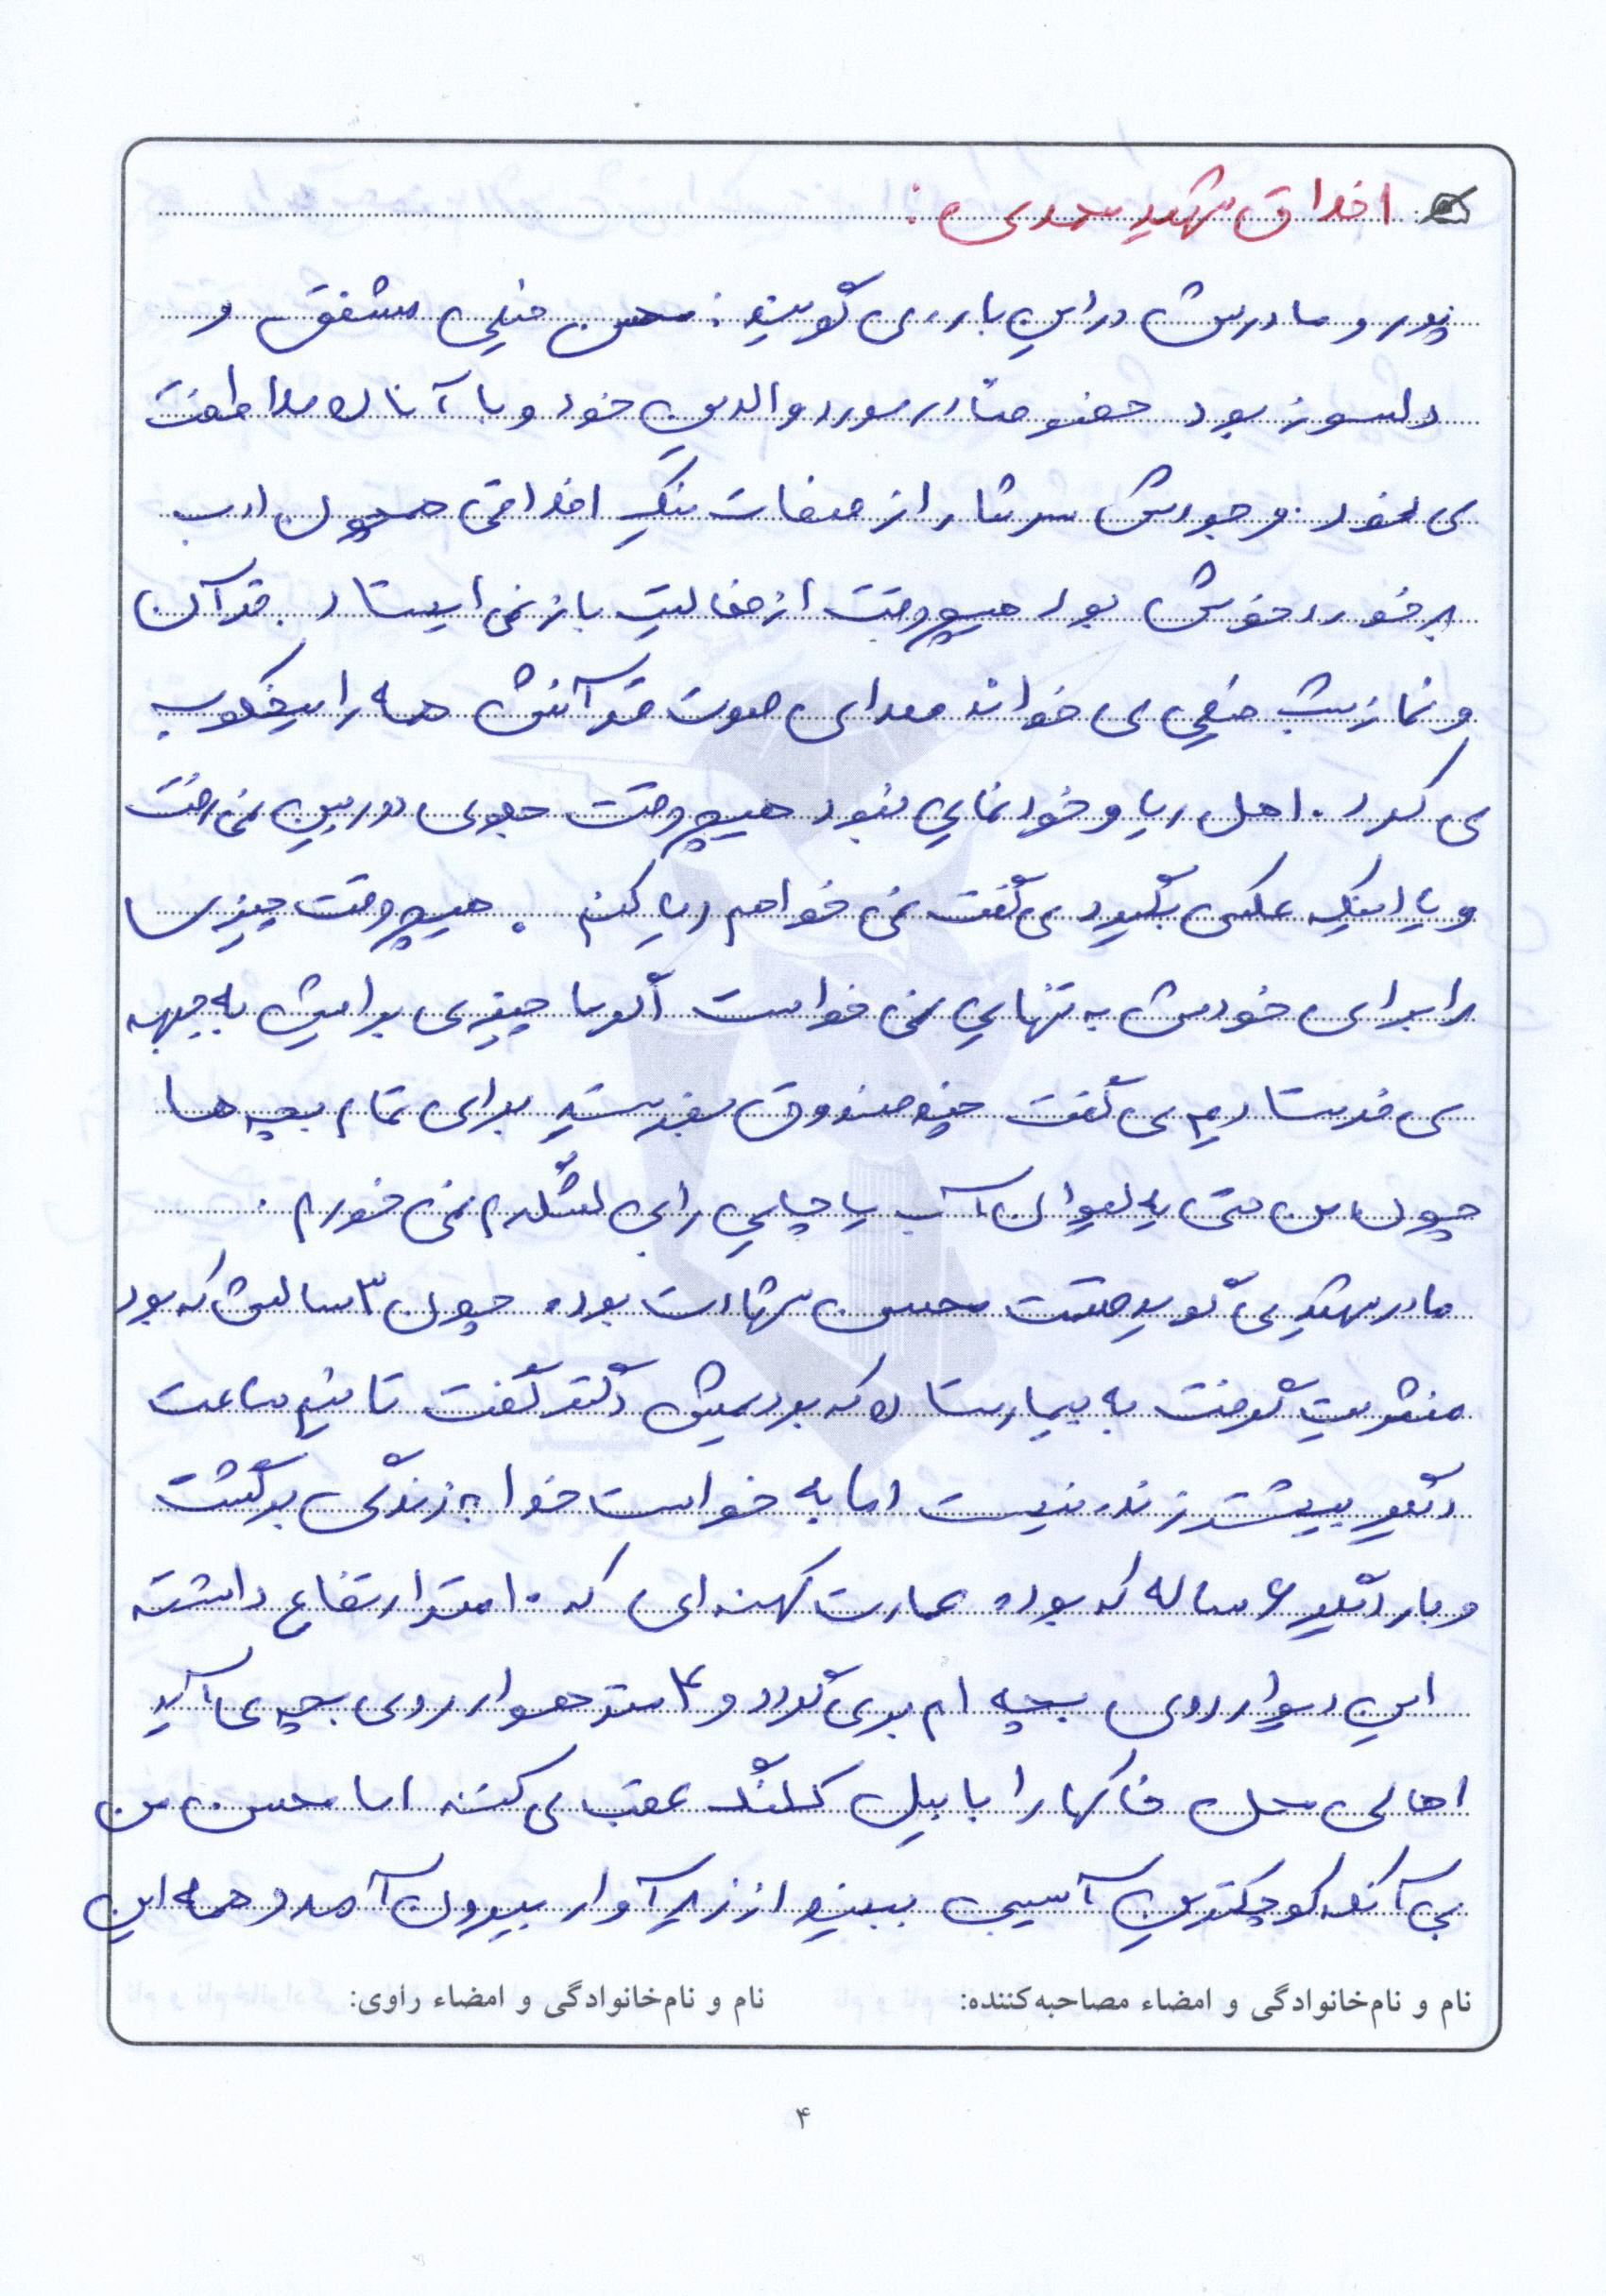 اخلاق شهید محمدی :
پدر و مادرش در این باره می گویند : محسن خیلی مشفق و
دلسوز بود خصوصاً در مورد والدین خود و با آنان ملاطفت
می نمود . وجودش سرشار از صفات نیک اخلاقی همچون ادب
برخورد خوش بود هیچ وقت از فعالیت باز نمی ایستاد . قرآن
و نماز شب خیلی می خواند صدای صوت قرآنش همه را میخکوب
می کرد . اهل ریا و خودنمایی نبود هیچ وقت جلوی دوربین نمی رفت
و یا اینکه عکسی بگیرد می گفت نمی خواهم ریا کنم . هیچ وقت چیزی
را برای خودش به تنهایی نمی خواست اگر ما چیزی برایش به جبهه
می فرستادیم می گفت چند صندوق بفرستید برای تمام بچه ها
چون من حتی یه لیوان آب یا چایی را بی لشگرم نمی خورم .
مادر شهید می گوید قسمت محسن شهادت بوده چون ۳ سالش که بود
مننژیت گرفت به بیمارستان که بردیمش دکتر گفت تا نیم ساعت
دیگر بیشتر زنده نیست اما به خواست خدا به زندگی برگشت
و بار دیگر ۶ ساله که بوده عمارت کهنه ای که ۱۰ متر ارتفاع داشته
این دیوار روی بچه ام برمی گردد و ۴ متر آوار روی بچه می آید
اهالی محل خاکها را با بیل کلنگ عقب می کنند اما محسن من
بی آنکه کوچکترین آسیبی ببیند از زیر آوار بیرون آمد و همه این
نام و نام‌خانوادگی و امضاء مصاحبه‌کننده: نام و نام‌خانوادگی و امضاء راوی:
۴